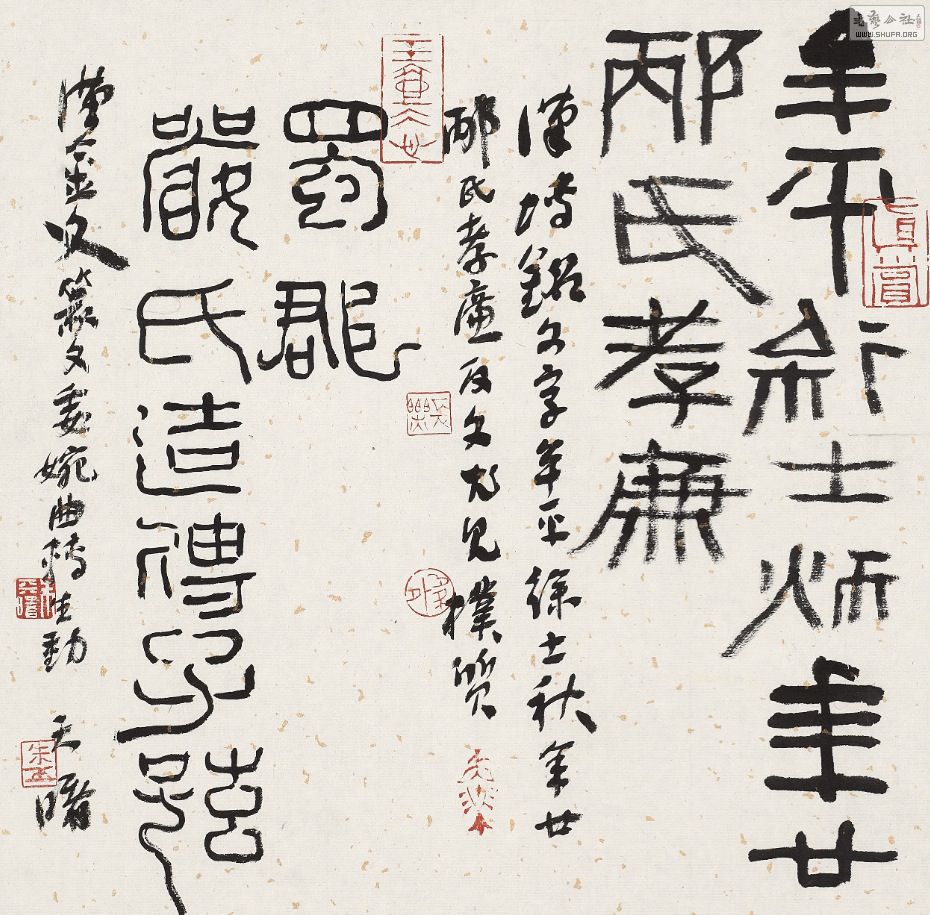 書藝公社
WWW.SHUFA.ORG
平
士
年廿
邴氏孝廉
漢塼銘文字年平徐士秋年廿
邴氏孝廉反文尤見樸質
蜀郡
嚴氏造傳子孫
漢吉金文篆文委婉曲轉生動 天曙
真賞